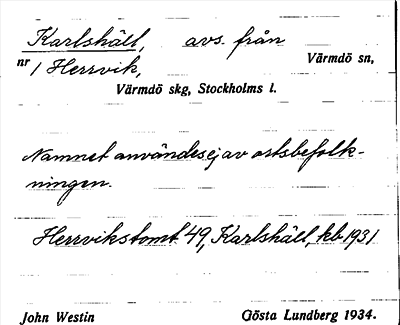 Karlshäll, avs. från
nr 1 Herrvik, Värmdö sn,
Värmdö skg, Stockholms l.
Namnet användes ej av ortsbefolk-
ningen.
Herrvikstomt 49, Karlshäll, kb 1931
John Westin Gösta Lundberg 1934.